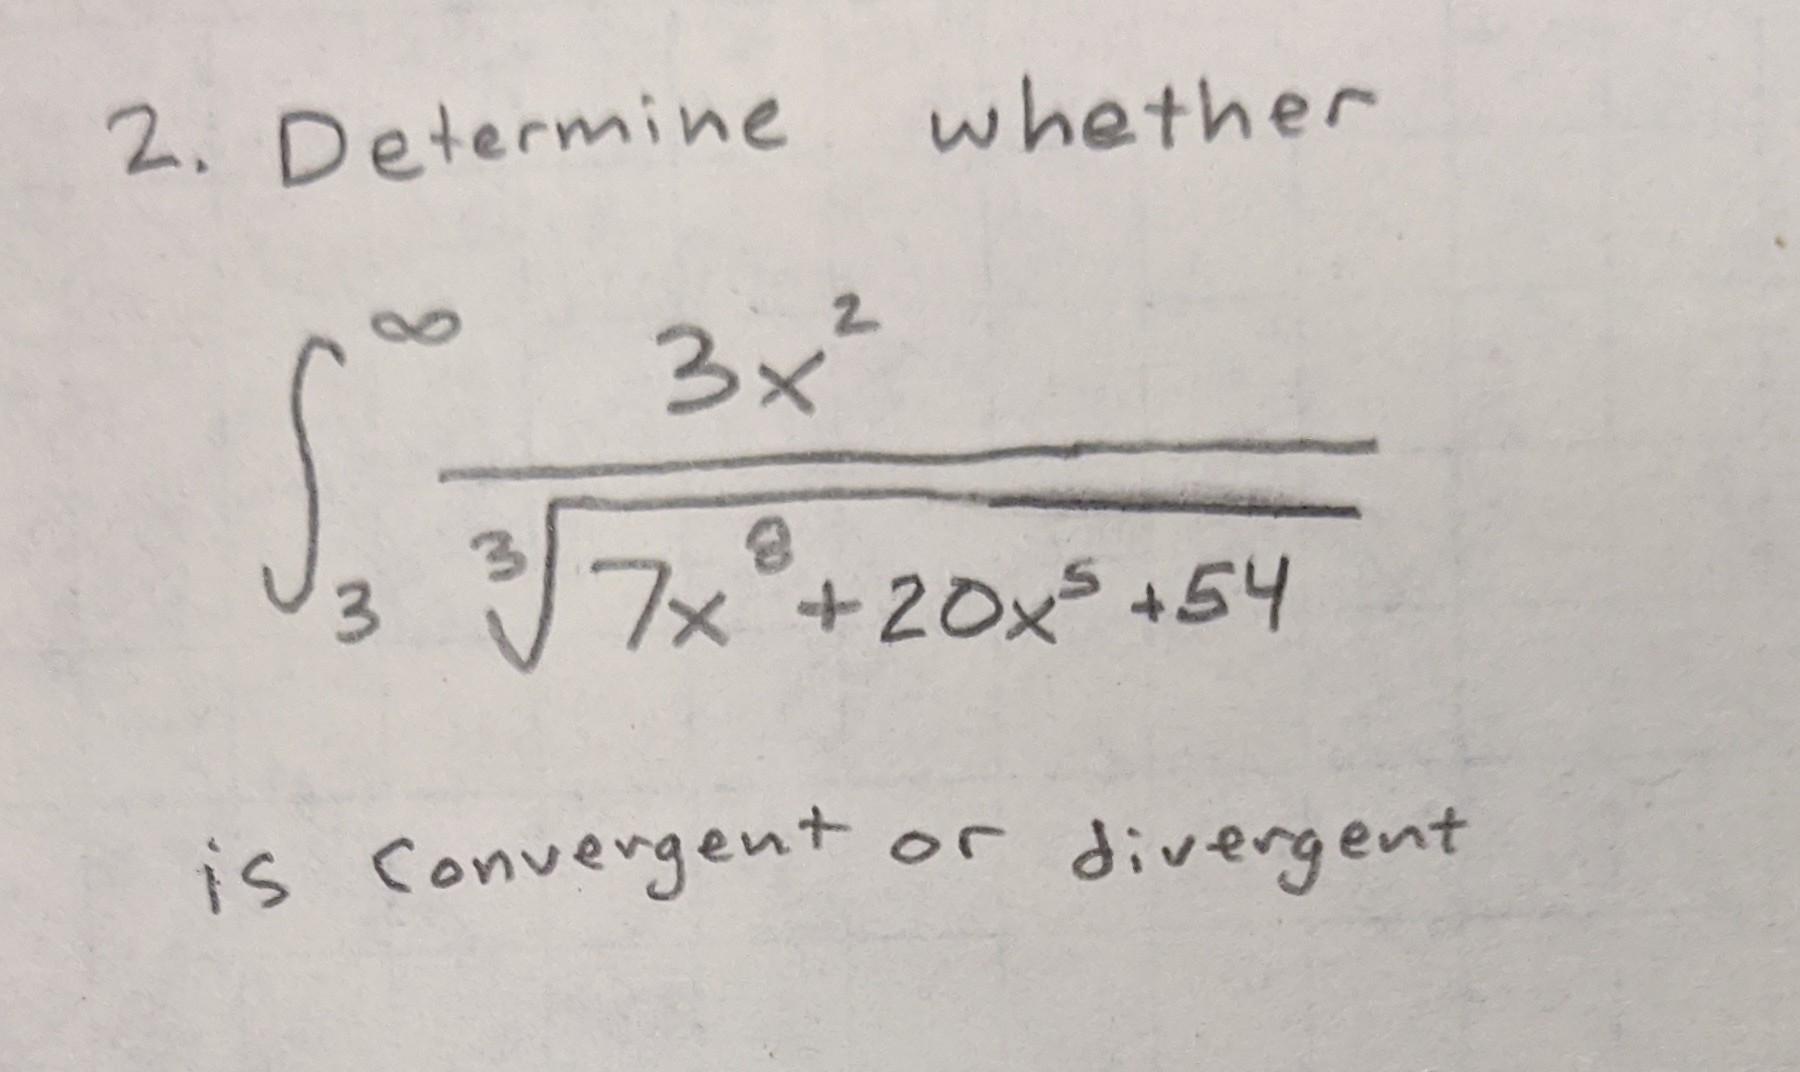 2. Determine whether
∫₃^∞ 3x² / ∛(7x⁸ + 20x⁵ + 54)
is convergent or divergent